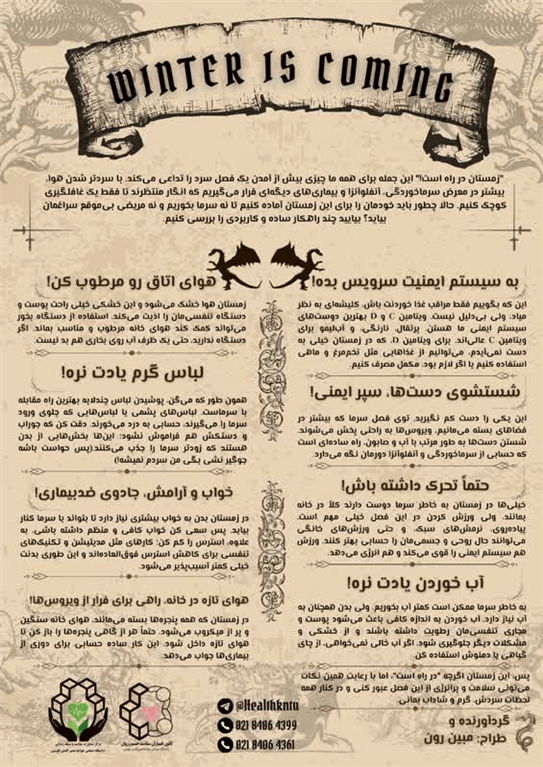 WINTER IS COMING
"زمستان در راه است!" این جمله برای همه ما چیزی بیش از آمدن یک فصل سرد را تداعی می‌کند. با سردتر شدن هوا،
بیشتر در معرض سرماخوردگی، آنفلوآنزا و بیماری‌های دیگه‌ای قرار می‌گیریم که انگار منتظرند تا فقط یک غافلگیری
کوچک کنیم. حالا چطور باید خودمان را برای این زمستان آماده کنیم تا نه سرما بخوریم و نه مریضی بی‌موقع سراغمان
بیاید؟ بیایید چند راهکار ساده و کاربردی را بررسی کنیم.
به سیستم ایمنیت سرویس بده!
این که بگوییم فقط مراقب غذا خوردنت باش، کلیشه‌ای به نظر
میاد، ولی بی‌دلیل نیست. ویتامین C و D بهترین دوست‌های
سیستم ایمنی ما هستن. پرتقال، نارنگی، و آب‌لیمو برای
ویتامین C عالی‌اند. برای ویتامین D، که در زمستان خیلی به
دست نمی‌آیدم، می‌توانیم از غذاهایی مثل تخم‌مرغ و ماهی
استفاده کنیم یا اگر لازم بود، مکمل مصرف کنیم.
شستشوی دست‌ها، سپر ایمنی!
این یکی را دست کم نگیرید. توی فصل سرما که بیشتر در
فضاهای بسته می‌مانیم، ویروس‌ها به راحتی پخش می‌شوند.
شستن دست‌ها به طور مرتب با آب و صابون، راه ساده‌ای است
که حسابی از سرماخوردگی و آنفلوآنزا دورمان نگه می‌دارد.
حتماً تحرک داشته باش!
خیلی‌ها در زمستان به خاطر سرما دوست دارند کلاً در خانه
بمانند. ولی ورزش کردن در این فصل خیلی مهم است.
پیاده‌روی، نرمش‌های سبک، و حتی ورزش‌های خانگی
می‌توانند حال روحی و جسمی‌مان را حسابی بهتر کنند. ورزش
هم سیستم ایمنی را قوی می‌کند و هم انرژی می‌دهد.
آب خوردن یادت نره!
به خاطر سرما ممکن است کمتر آب بخوریم، ولی بدن همچنان به
آب نیاز دارد. آب خوردن به اندازه کافی باعث می‌شود پوست و
مجاری تنفسی‌مان رطوبت داشته باشند و از خشکی و
مشکلات دیگر جلوگیری شود. اگر آب خالی نمی‌خواهی، از چای
گیاهی یا دمنوش استفاده کن.
پس، این زمستان اگرچه "در راه است"، اما با رعایت همین نکات
می‌تونی سلامت و پرانرژی از این فصل عبور کنی و در کنار همه
لحظات سردش، گرم و شاداب بمانی.
گردآورنده و
طراح: مبین رون
هوای اتاق رو مرطوب کن!
زمستان هوا خشک می‌شود و این خشکی خیلی راحت پوست و
دستگاه تنفسی‌مان را اذیت می‌کند. استفاده از دستگاه بخور
می‌تواند کمک کند هوای خانه مرطوب و مناسب بماند. اگر
دستگاه ندارید، حتی یک ظرف آب روی بخاری هم بد نیست.
لباس گرم یادت نره!
همون طور که می‌گن، پوشیدن لباس چندلایه بهترین راه مقابله
با سرماست. لباس‌های پشمی یا لباس‌هایی که جلوی ورود
سرما را می‌گیرند، حسابی به درد می‌خورند. دقت کن که جوراب
و دستکش هم فراموش نشود؛ این‌ها بخش‌هایی از بدن
هستند که زودتر سرما را جذب می‌کنند.(پس حواست باشه
جوگیر نشی بگی من سردم نمیشه!)
خواب و آرامش، جادوی ضدبیماری!
در زمستان بدن به خواب بیشتری نیاز دارد تا بتواند با سرما کنار
بیاید. پس سعی کن خواب کافی و منظم داشته باشی. به
علاوه، استرس را کم کن؛ کارهای مثل مدیتیشن و تکنیک‌های
تنفسی برای کاهش استرس فوق‌العاده‌اند و این طوری بدنت
خیلی کمتر آسیب‌پذیر می‌شود.
هوای تازه در خانه، راهی برای فرار از ویروس‌ها!
در زمستان که همه پنجره‌ها بسته می‌مانند، هوای خانه سنگین
و پر از میکروب می‌شود. حتماً هر از گاهی پنجره‌ها را باز کن تا
هوای تازه داخل شود. این کار ساده حسابی برای دوری از
بیماری‌ها جواب می‌دهد.
@Healthkntu
021 8406 4399
021 8406 4361